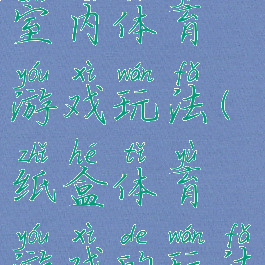 室内体育
yóu xì wán fǎ
游戏玩法(
zhǐ hé tǐ yù
纸盒体育
yóu xì de wán fǎ
游戏的玩法